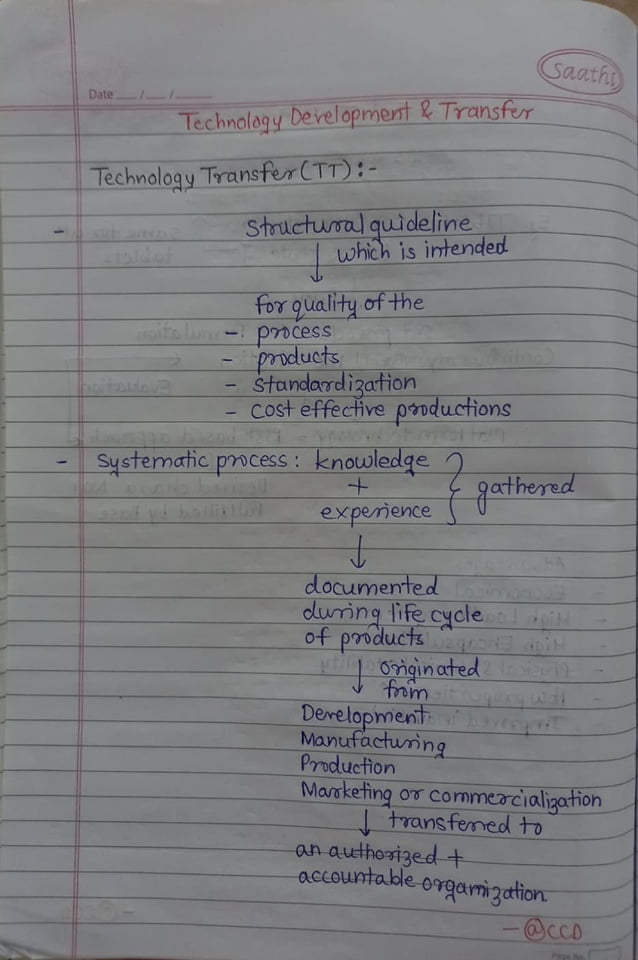 Saathi
Date __/__/____
Technology Development & Transfer
Technology Transfer (TT) :-
- Structural guideline
↓ which is intended
for quality of the
- process
- products
- standardization
- cost effective productions
- Systematic process : knowledge
+ } gathered
experience
↓
documented
during life cycle
of products
↓ originated
from
Development
Manufacturing
Production
Marketing or commercialization
↓ transferred to
an authorized +
accountable organization.
- @CCD
Page No.